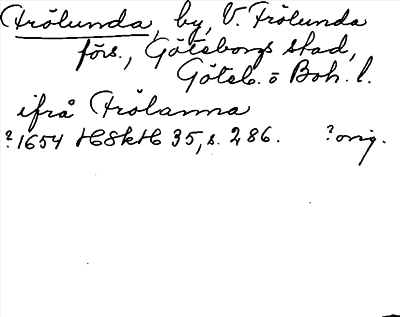 Frölunda, by, V. Frölunda
förs., Göteborgs stad,
Göteb. o Boh. l.
ifrå Frölanna
?1654 HSkH 35, s. 286. ?orig.